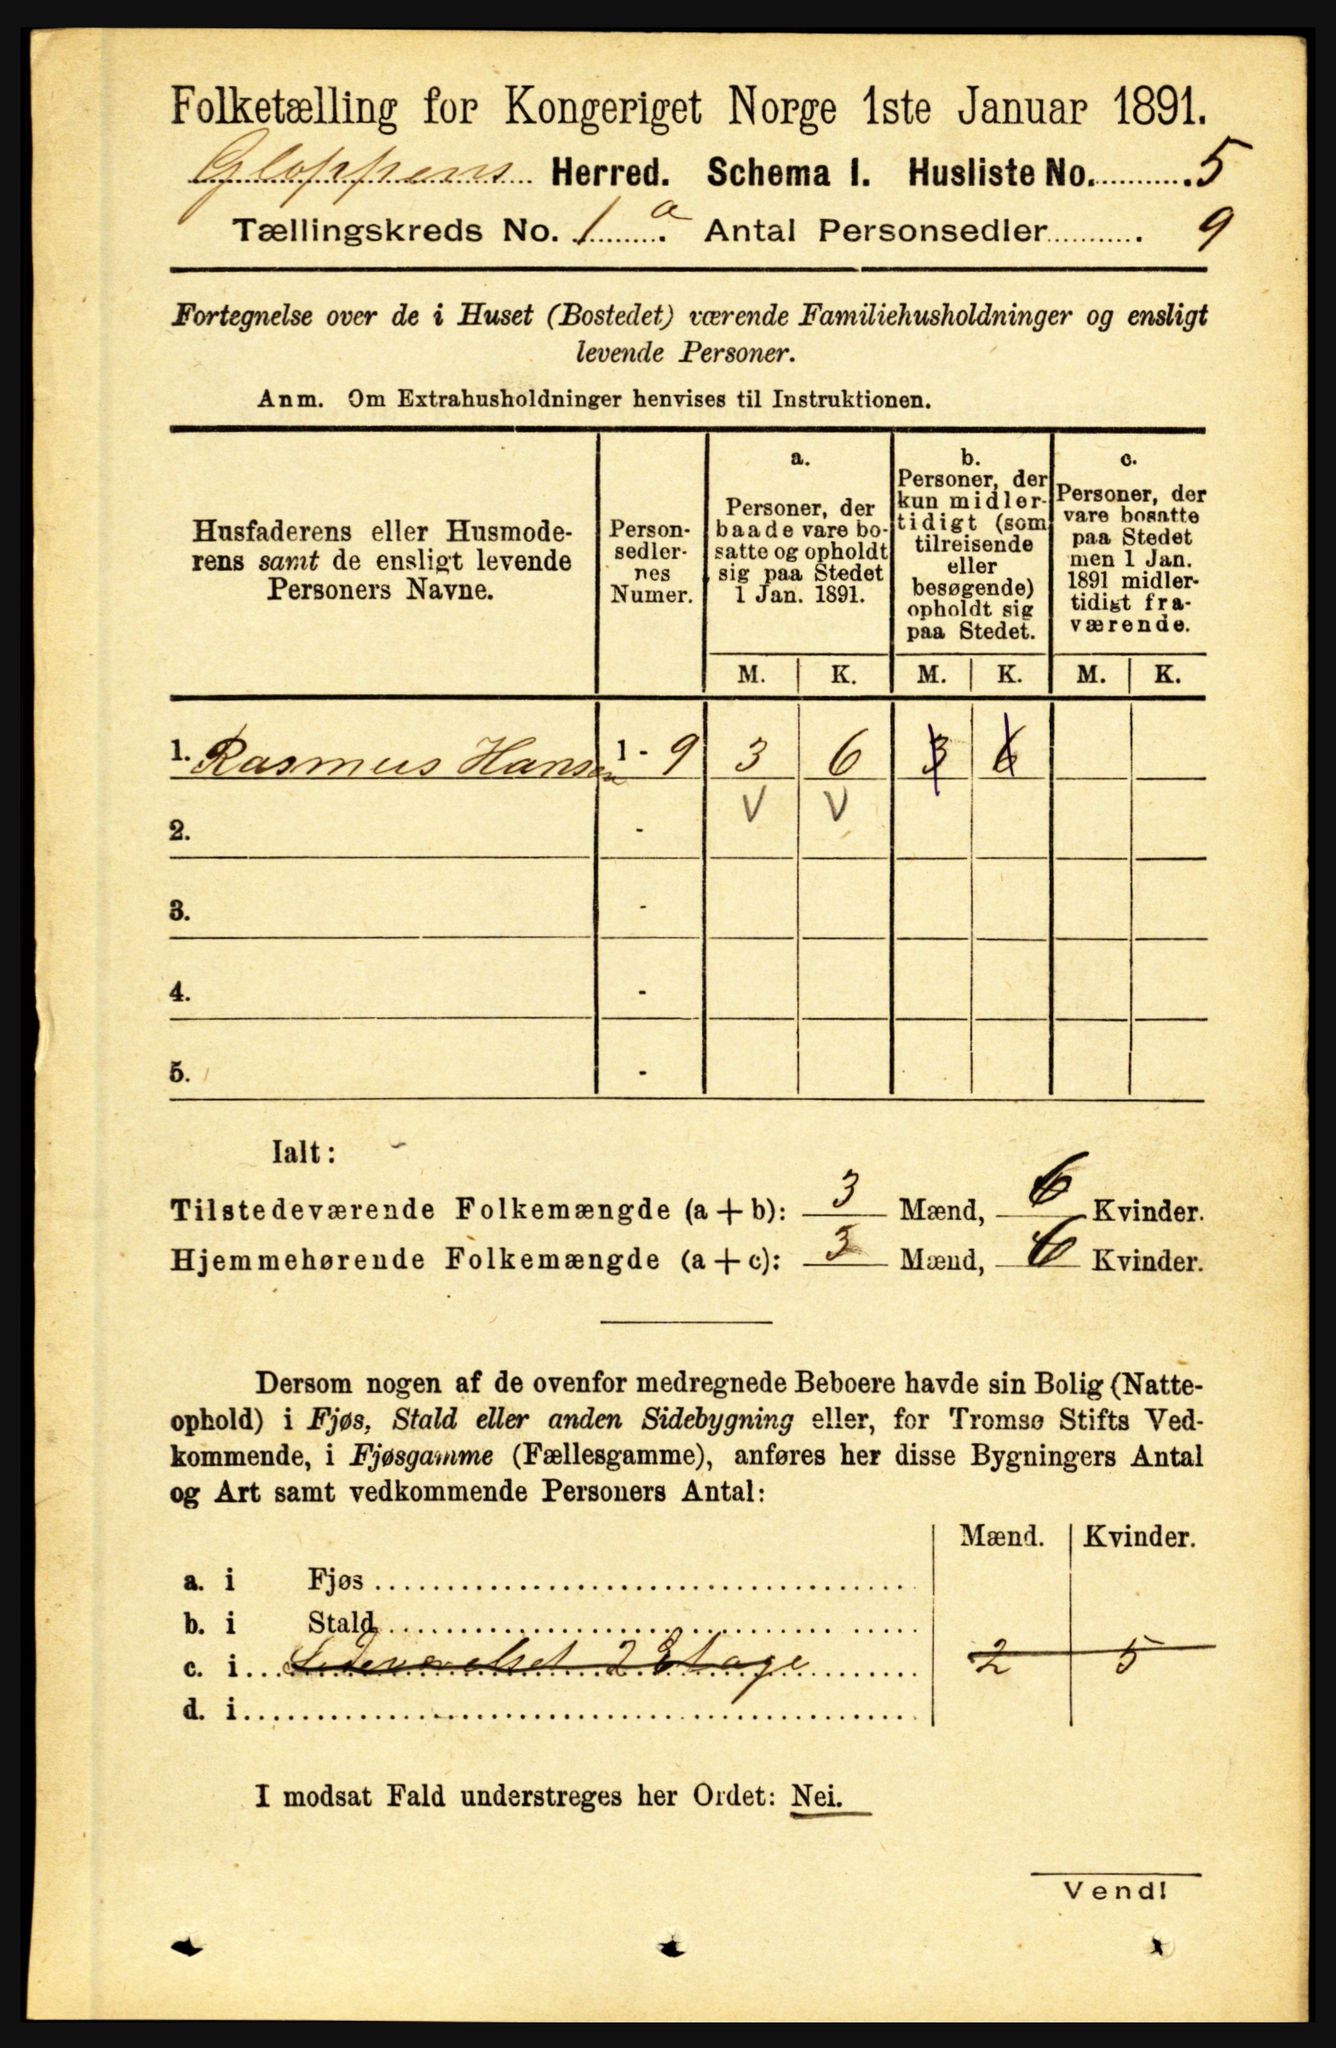 Folketælling for Kongeriget Norge 1ste Januar 1891.
Gloppens Herred. Schema I. Husliste No. 5
Tællingskreds No. 1 a. Antal Personsedler 9
Fortegnelse over de i Huset (Bostedet) værende Familiehusholdninger og ensligt
levende Personer.
Anm. Om Extrahusholdninger henvises til Instruktionen.
Husfaderens eller Husmode-
rens samt de ensligt levende
Personers Navne.
Person-
sedler-
nes
Numer.
a.
Personer, der
baade vare bo-
satte og opholdt
sig paa Stedet
1 Jan. 1891.
b.
Personer, der
kun midler-
tidigt (som
tilreisende
eller
besøgende)
opholdt sig
paa Stedet.
c.
Personer, der
vare bosatte
paa Stedet
men 1 Jan.
1891 midler-
tidigt fra-
værende.
M. K. M. K. M. K.
1. Rasmus Hansen 1 - 9 3 6 3 6
V V
2. -
3. -
4. -
5. -
Ialt:
Tilstedeværende Folkemængde (a + b): 3 Mænd, 6 Kvinder.
Hjemmehørende Folkemængde (a + c): 3 Mænd, 6 Kvinder.
Dersom nogen af de ovenfor medregnede Beboere havde sin Bolig (Natte-
ophold) i Fjøs, Stald eller anden Sidebygning eller, for Tromsø Stifts Ved-
kommende, i Fjøsgamme (Fællesgamme), anføres her disse Bygningers Antal
og Art samt vedkommende Personers Antal:
Mænd. Kvinder.
a. i Fjøs
b. i Stald
c. i 2 Etage 2 5
d. i
I modsat Fald understreges her Ordet: Nei.
Vend!